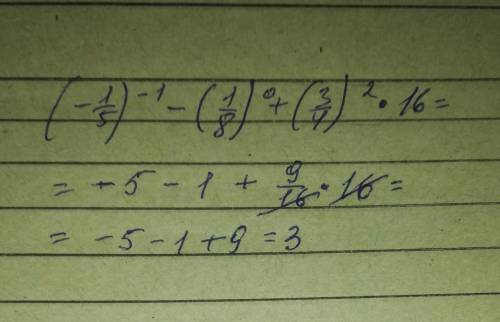 (-1/5)^-1 - (1/8)^0 + (3/4)^2 · 16 =
= -5 - 1 + 9/16 · 16 =
= -5 - 1 + 9 = 3